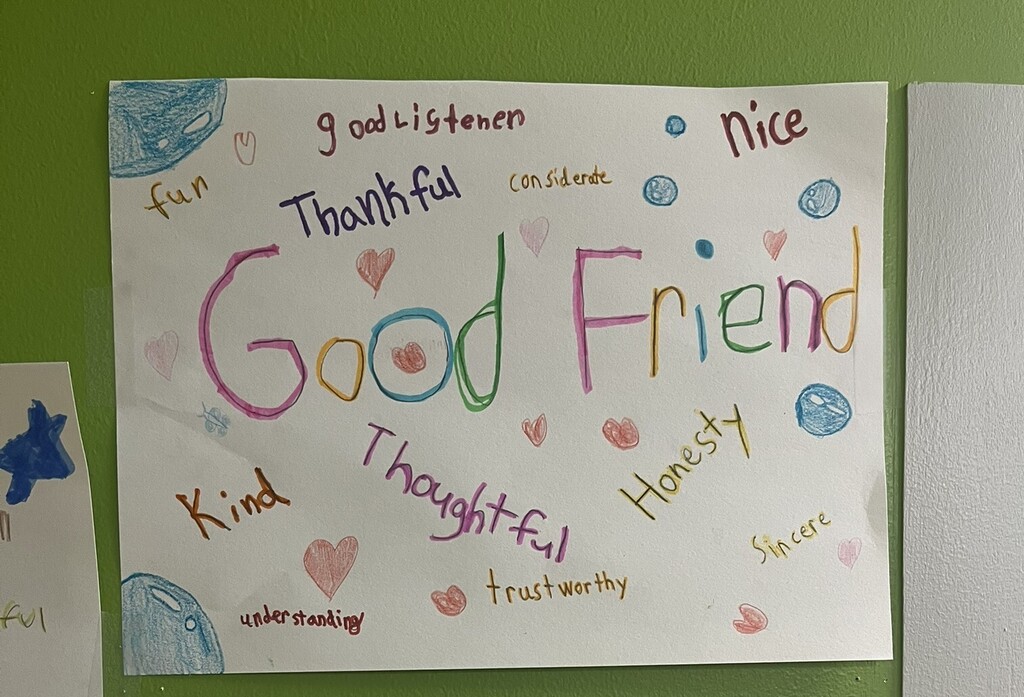 good Listener
nice
fun
Thankful
considerate
Good Friend
Thoughtful
Honesty
Kind
sincere
trustworthy
understanding
ful